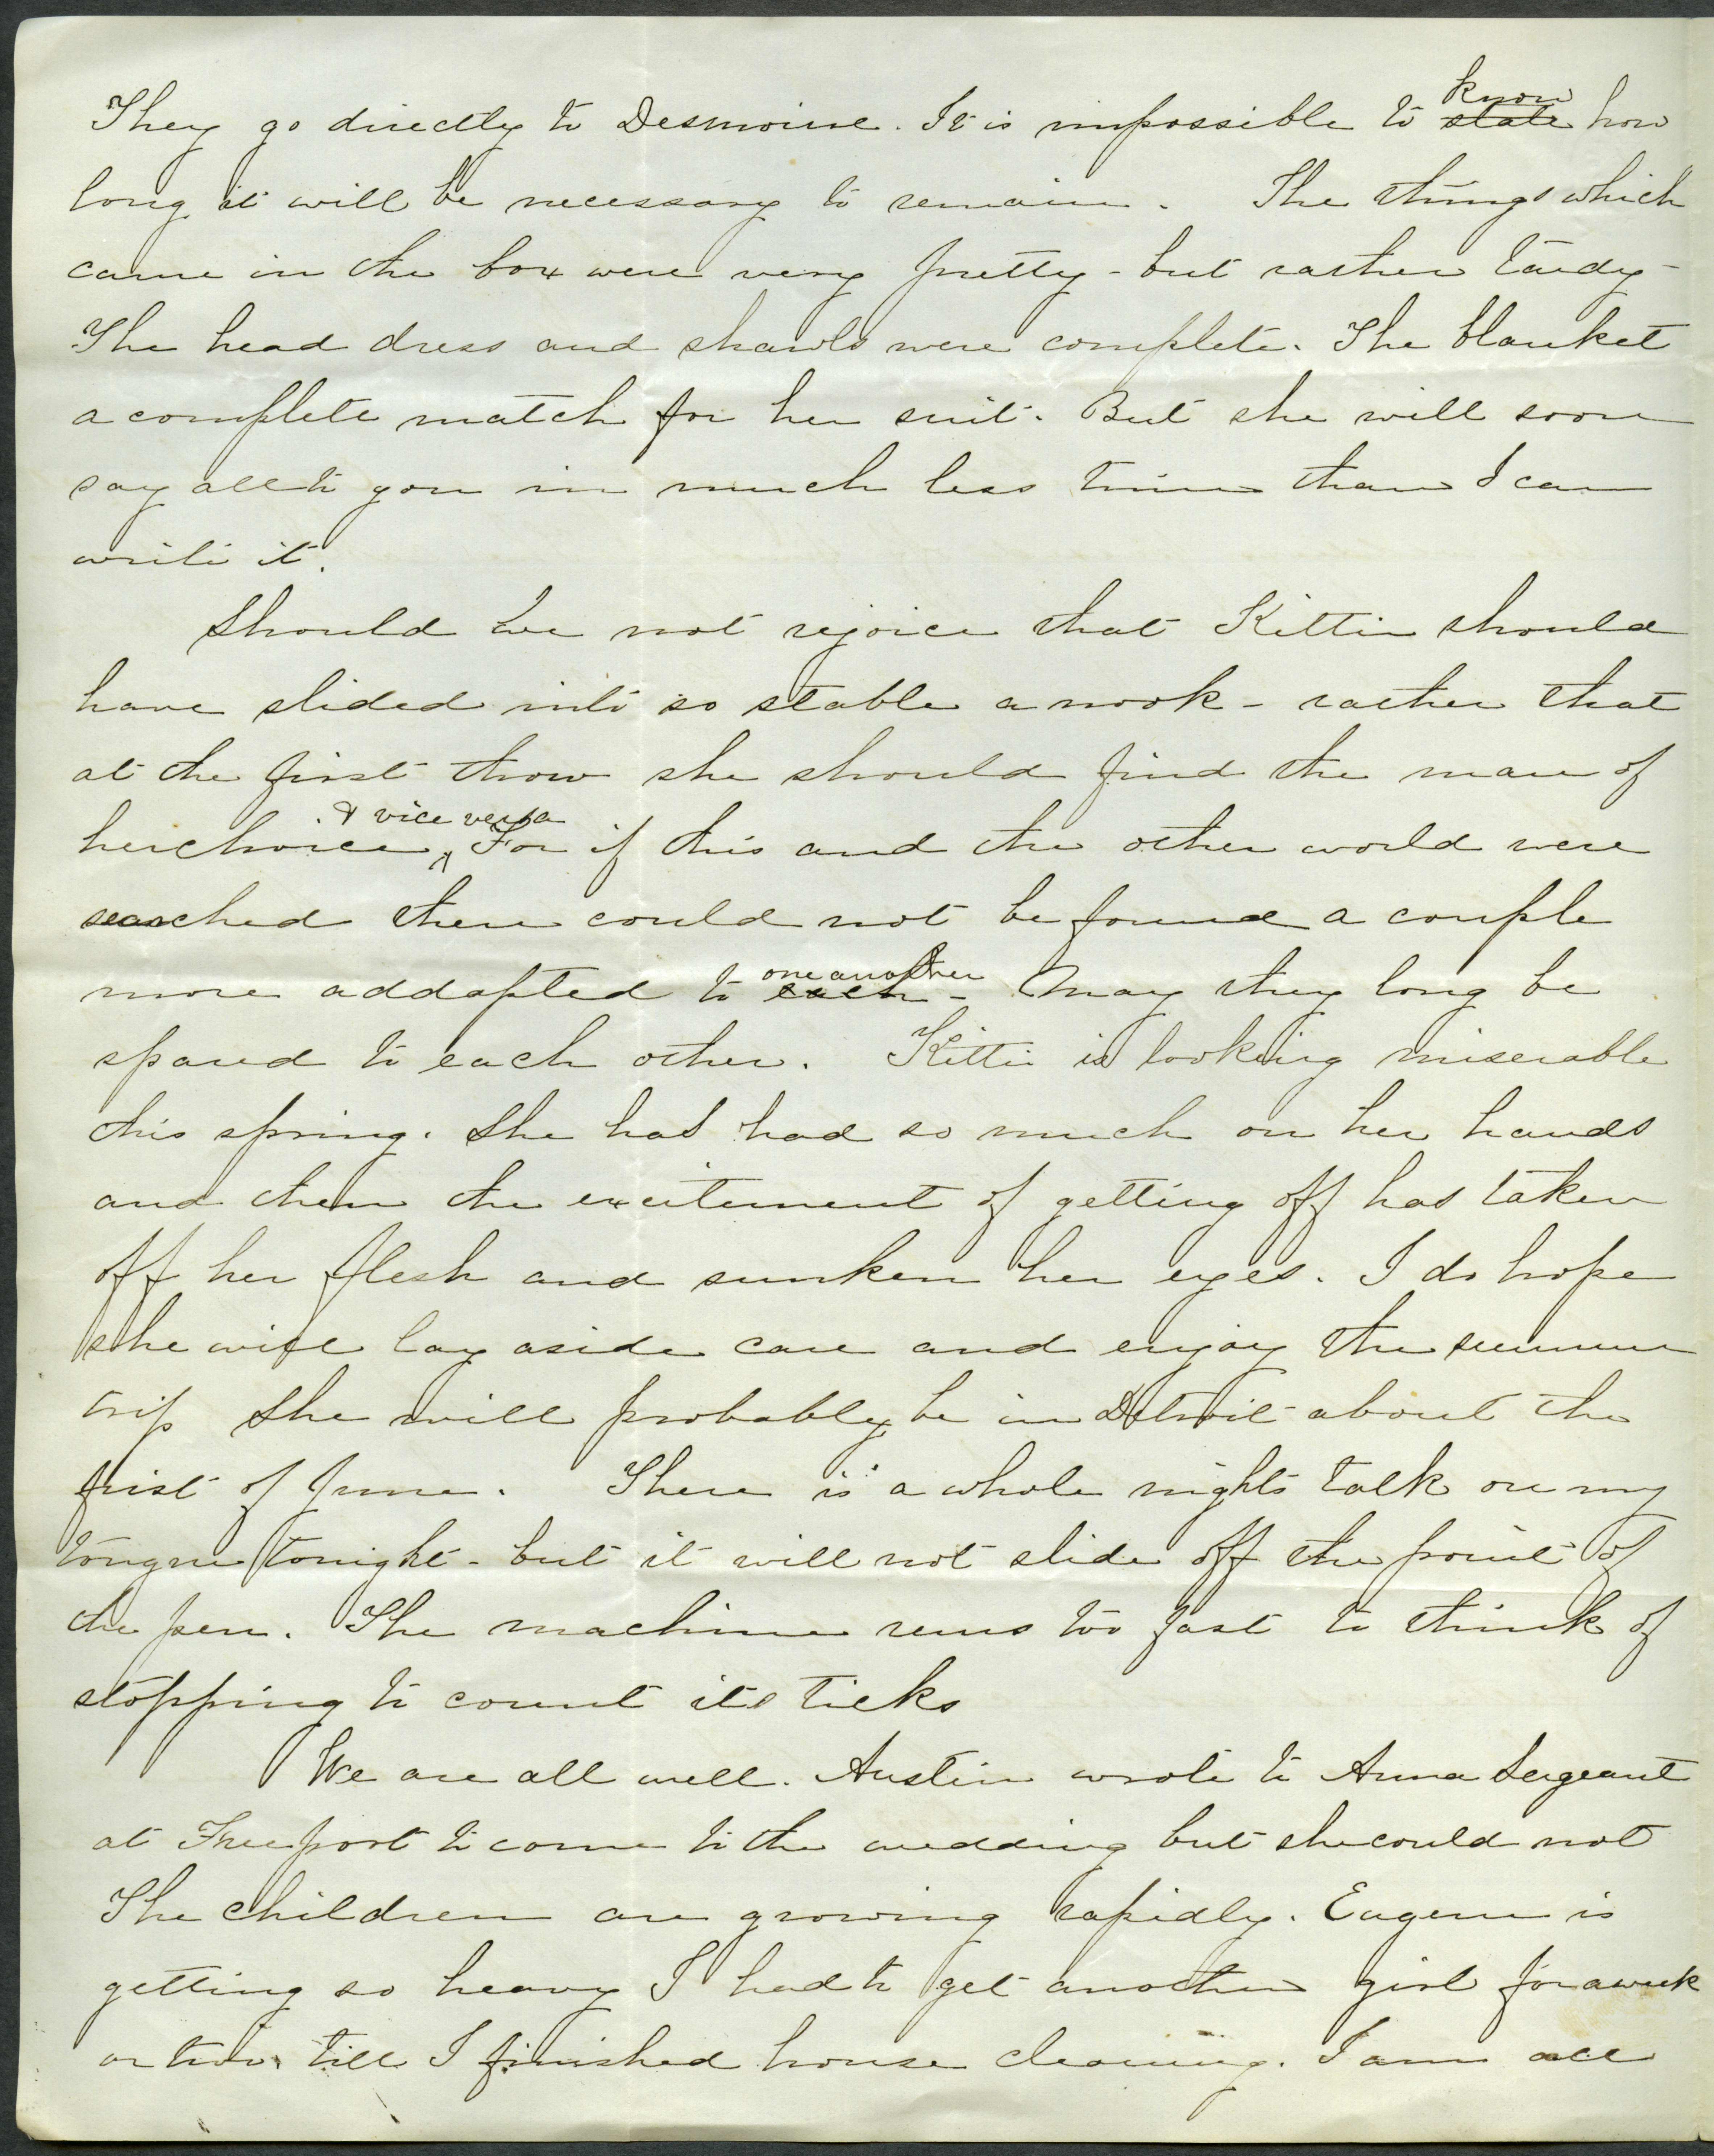 They go directly to Desmoine. It is impossible to state know how
long it will be necessary to remain. The things which
came in the box were very pretty - but rather tardy -
The head dress and shawls were complete. The blanket
a complete match for her suit. But she will soon
say all to you in much less time than I can
write it.
Should we not rejoice that Kittie should
have slided into so stable a nook - rather that
at the first throw she should find the man of
her choice & vice versa. For if this and the other world were
searched there could not be found a couple
more addapted to each one another - May they long be
spared to each other. Kittie is looking miserable
this spring. She has had so much on her hands
and then the excitement of getting off has taken
off her flesh and sunken her eyes. I do hope
she will lay aside care and enjoy the summer
trip She will probably be in Detroit about the
first of June. There is a whole nights talk on my
tongue tonight - but it will not slide off the point of
the pen. The machine runs too fast to think of
stopping to count its ticks
We are all well. Austin wrote to Anna Sergeant
at Freeport to come to the wedding but she could not
The children are growing rapidly. Eugene is
getting so heavy I had to get another girl for a week
or two. till I finished house cleaning. I am all